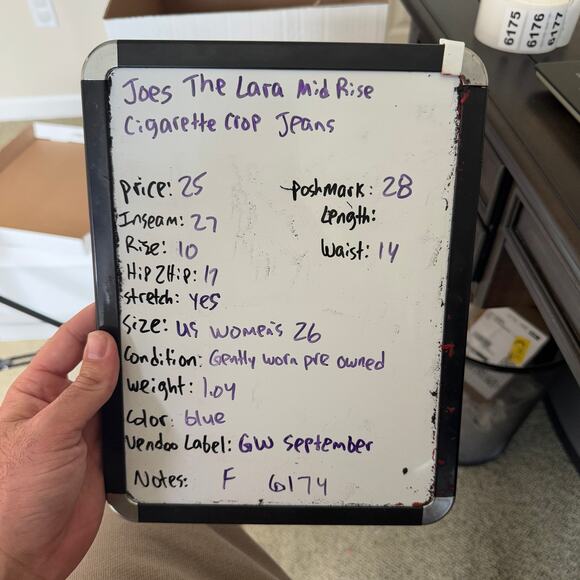 6175
6176
6177
Joes The Lara Mid Rise
Cigarette Crop Jeans
price: 25
Poshmark: 28
Inseam: 27
Length:
Rise: 10
Waist: 14
Hip 2 Hip: 17
stretch: yes
Size: US women's 26
Condition: Gently worn pre owned
weight: 1.04
Color: blue
Vendoo Label: GW September
Notes: F 6174